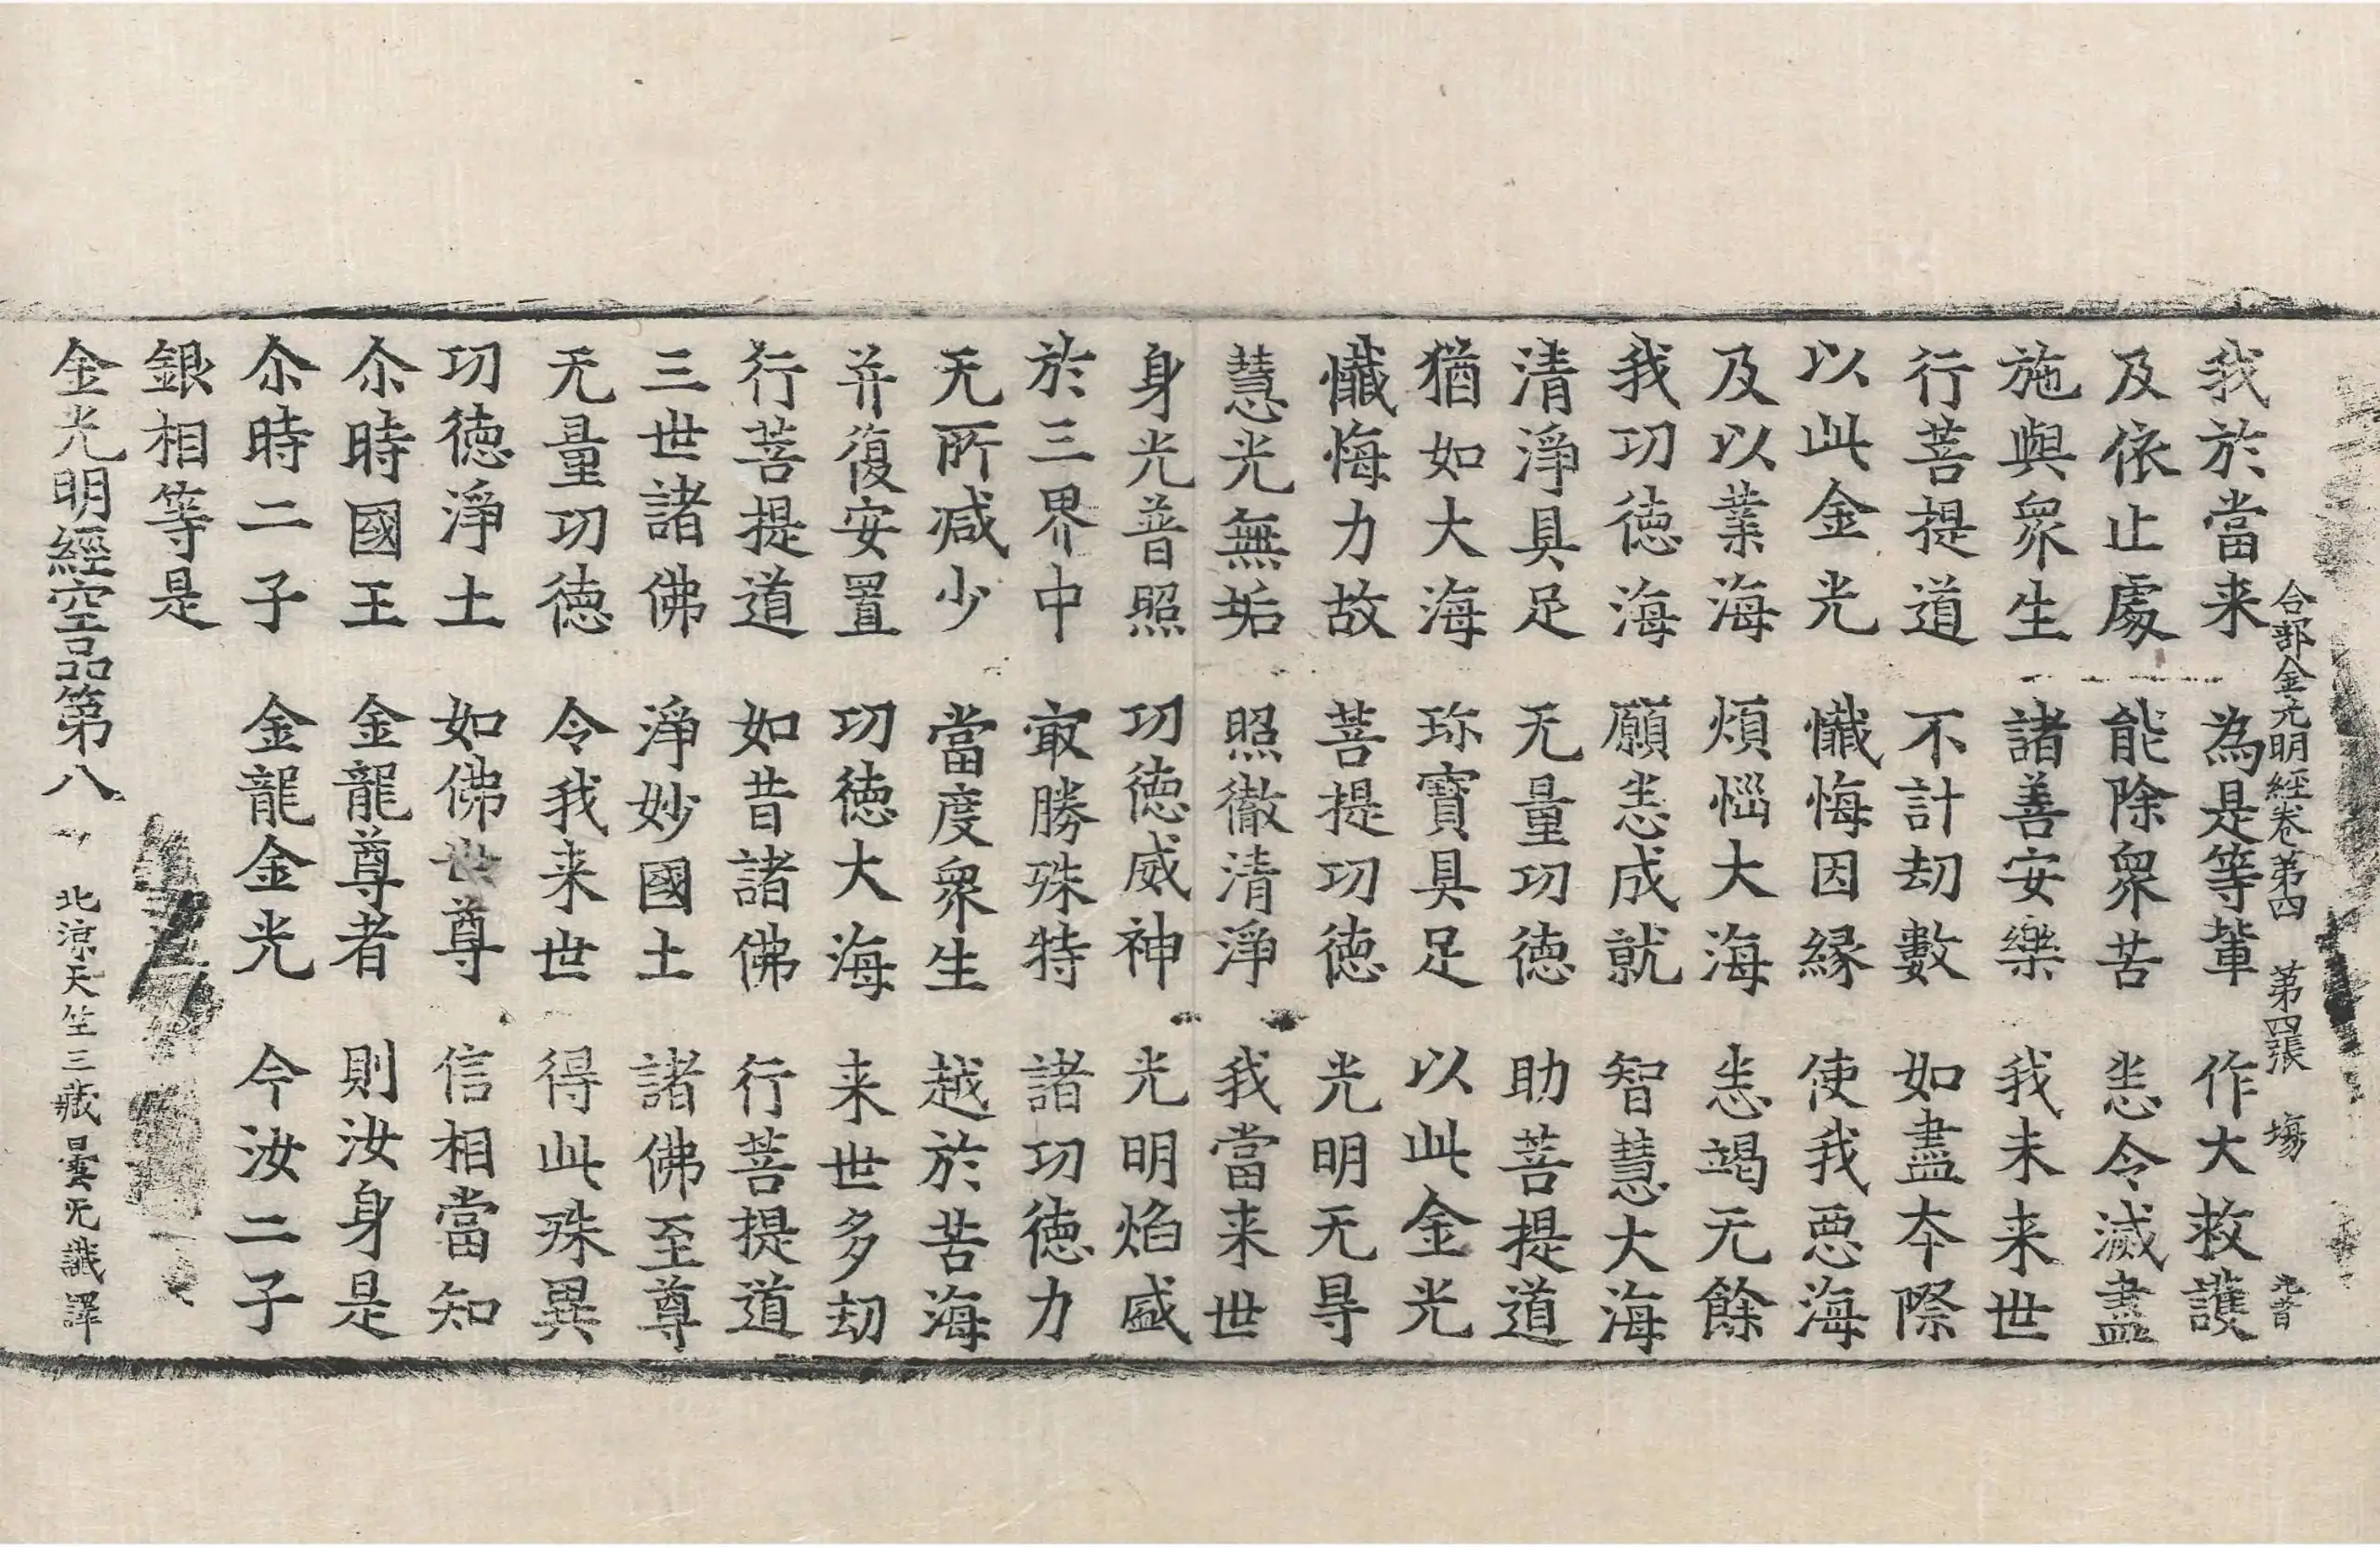 合部金光明經卷第四 第四張 塲
我於當来 為是等輩 作大救護
及依止處 能除衆苦 悉令滅盡
施與衆生 諸善安樂 我未来世
行菩提道 不計劫數 如盡夲際
以此金光 懺悔因縁 使我惡海
及以業海 煩惱大海 悉竭无餘
我功徳海 願悉成就 智慧大海
清淨具足 无量功徳 助菩提道
猶如大海 珎寶具足 以此金光
懺悔力故 菩提功徳 光明无㝵
慧光無垢 照徹清淨 我當来世
身光普照 功徳威神 光明焰盛
於三界中 㝡勝殊特 諸功徳力
无所減少 當度衆生 越於苦海
并復安置 功徳大海 来世多劫
行菩提道 如昔諸佛 行菩提道
三世諸佛 淨妙國土 諸佛至尊
无量功徳 令我来世 得此殊異
功徳淨土 如佛世尊 信相當知
尒時國王 金龍尊者 則汝身是
尒時二子 金龍金光 今汝二子
銀相等是
金光明經空品第八 北涼天竺三藏曇无讖譯